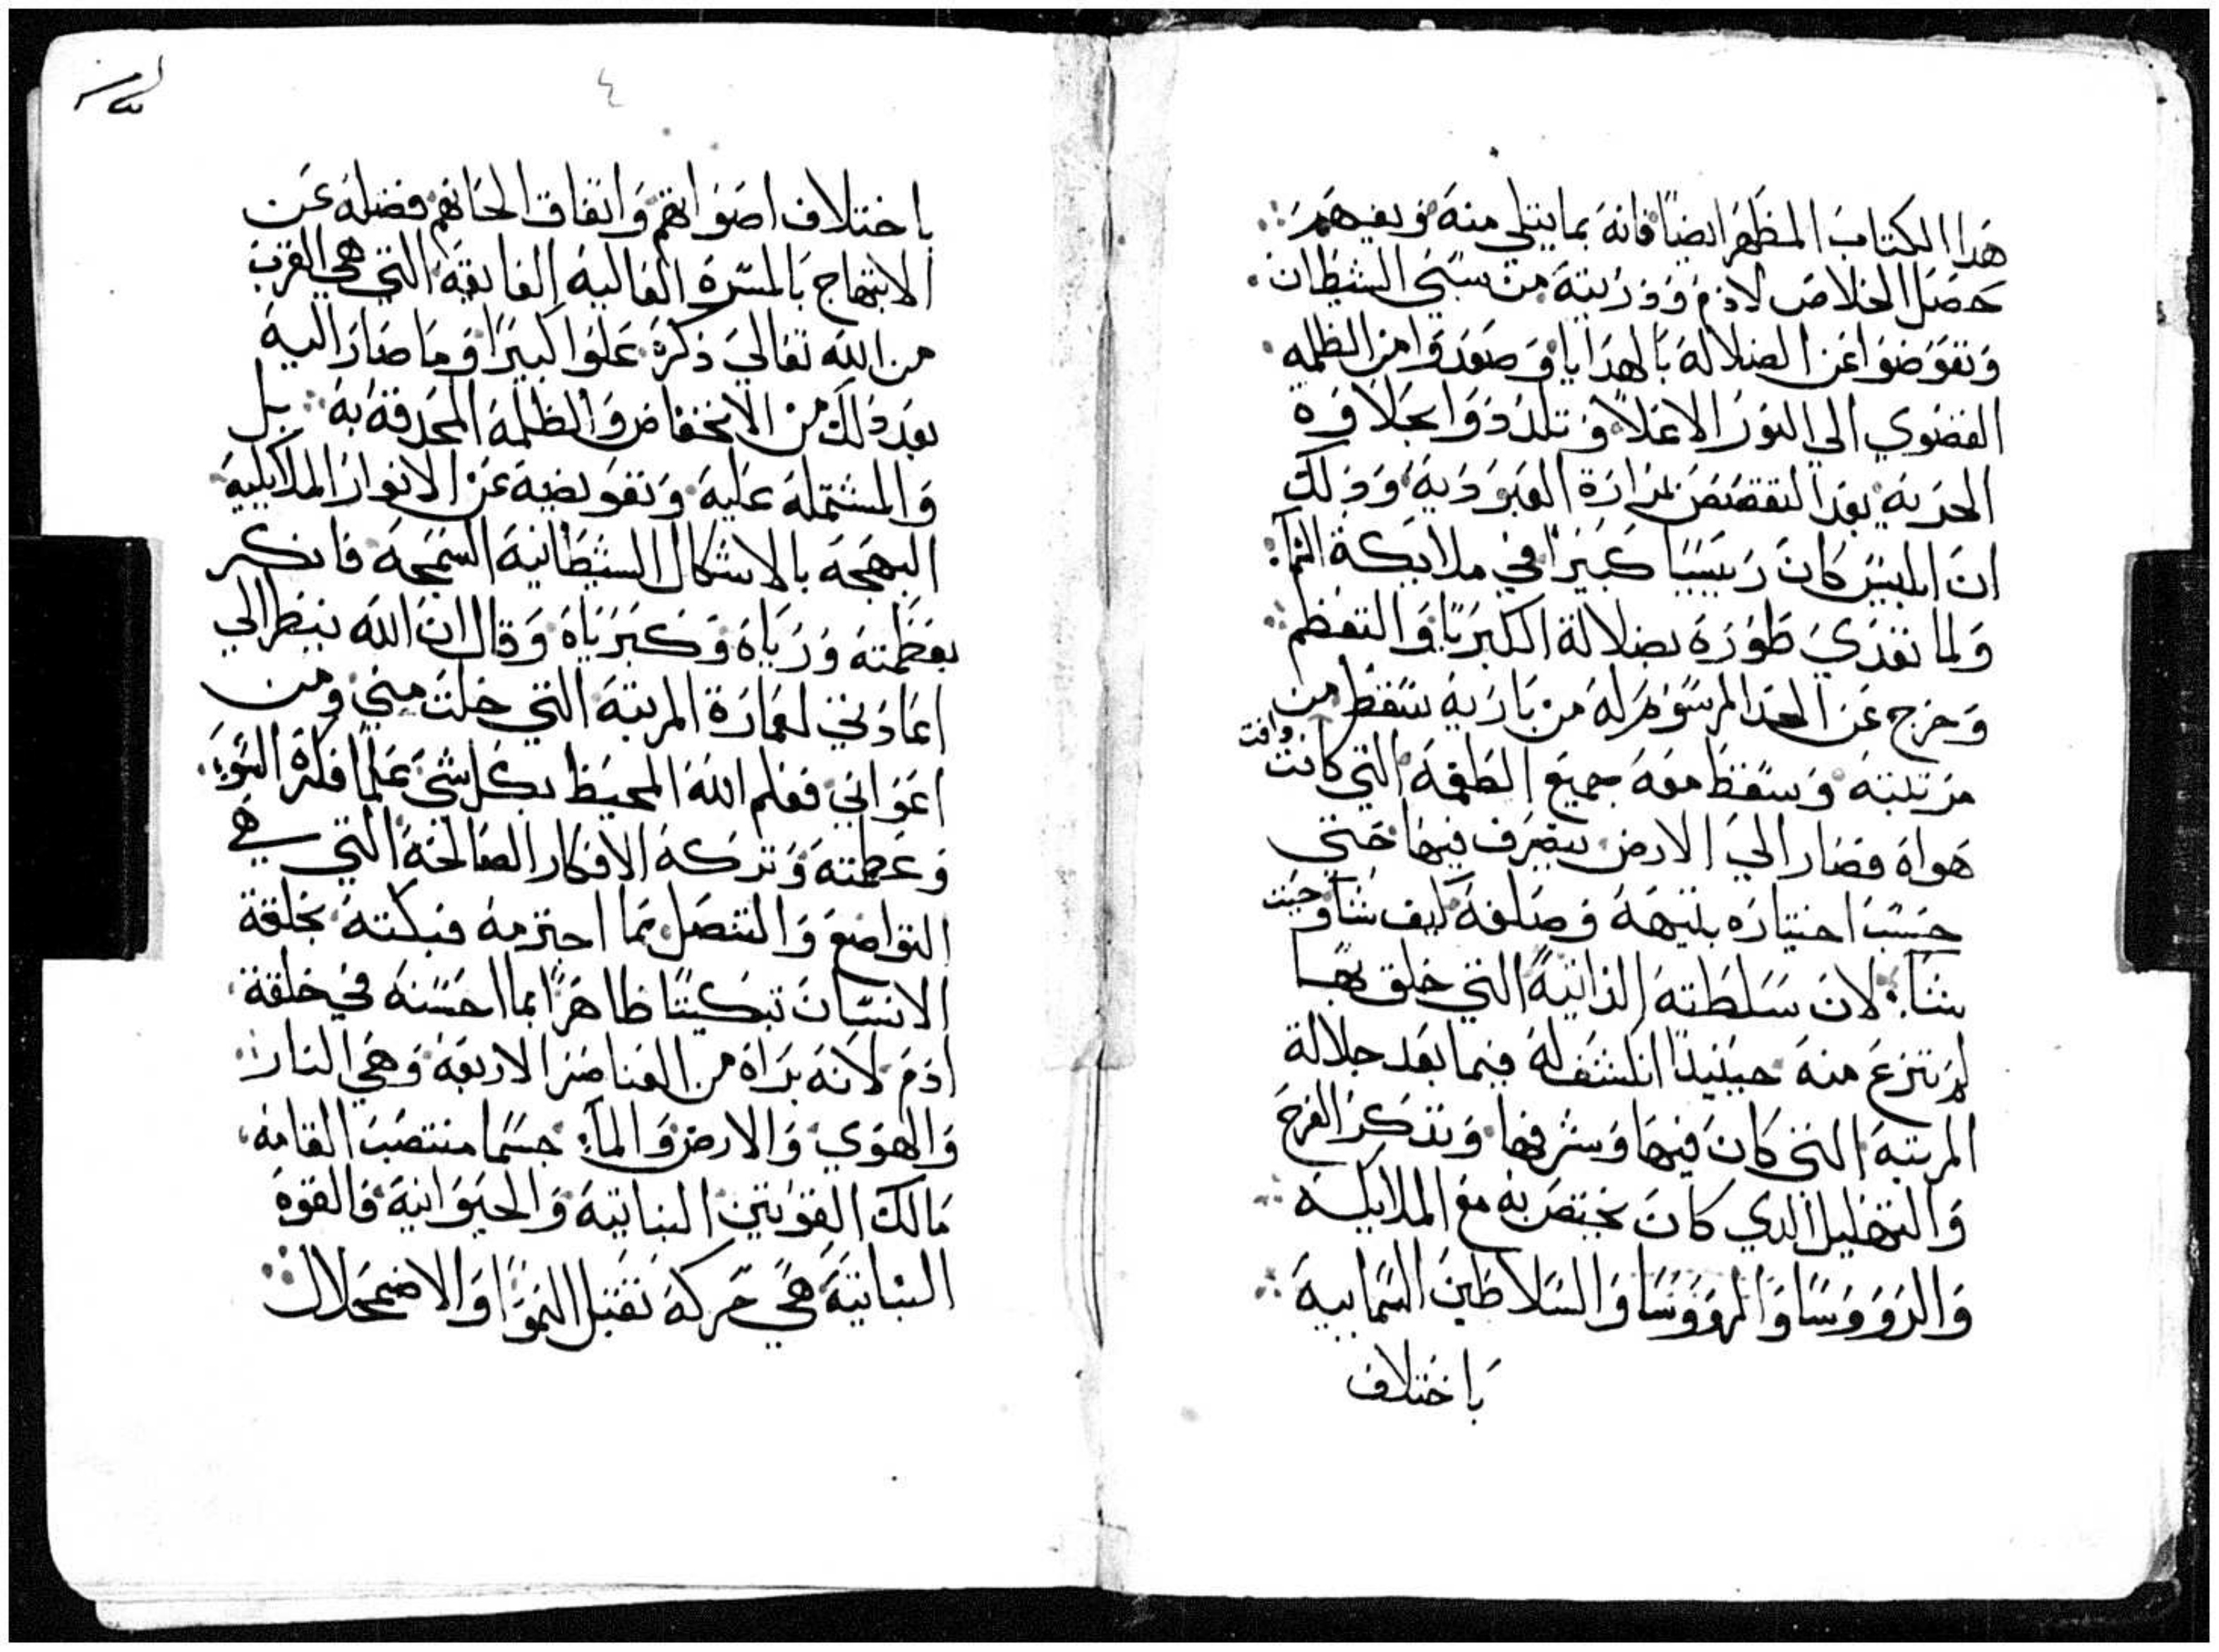 هدا الكتاب المظهر ايضاً فانه بما يتلي منه ويفهم
حصل الخلاص لادم وذريته من سبي الشيطان
وتعوضوا عن الضلالة بالهدايا وصعدوا من الظلمه
القصوي الي النور الاعلا وتلددوا بحلاوة
الحرية بعد التغصص بمرارة العبودية ودلك
ان ابليس كان رييسا كبيرا في ملايكة السما
ولما تعدي طوره بضلالة الكبريا والتعظم
وخرج عن الحد المرسوم له من باريه سقط من
مرتبته وسقط معه جميع الطغمة التي كانت وافقت
هواه فصار الي الارض يتصرف فيها حتي
حسب اختياره بتيهه وصلفه كيف شا وحيت
شا لان سلطته الداتية التي خلق بها
لم تنزع منه حينيدا انكشف له فيما بعد جلالة
المرتبة التي كان فيها وشرفها وتدكر الفرح
والتهليل الدي كان يختص به مع الملايكه
والروووسا والمرووسا والسلاطين السماييه
باختلاف
٤
باختلاف اصواتهم واتفاق الحانهم فضله عن
الابتهاج بالمسرة العاليه الفايقة التي هي القرب
من الله تعالي دكره علوا كبيرا وما صار اليه
بعد دلك من الانخفاض والظلمة المحدقة به بل
والمشتملة عليه وتعويضه عن الانوار الملايكيه
البهجة بالاشكال الشيطانية السمجة فانكر
بعظمته ورياه وكبرياه وقال ان الله ينظر الي
اعادتي لعمارة المرتبة التي خلت مني ومن
اعواني فعلم الله المحيط بكل شي علما فكرة السو
وعظمته وتركه الافكار الصالحة التي هي
التواضع والتنصل مما اجترمه فبكته بخلقة
الانسان تبكيتا ظاهرا بما احسنه في خلقة
ادم لانه براه من العناصر الاربعة وهي النار
والهوي والارض والما جسما منتصب القامه
مالك القوتين النباتية والحيوانية فالقوه
النباتية هي حركة تقتبل النموا والاضمحلال